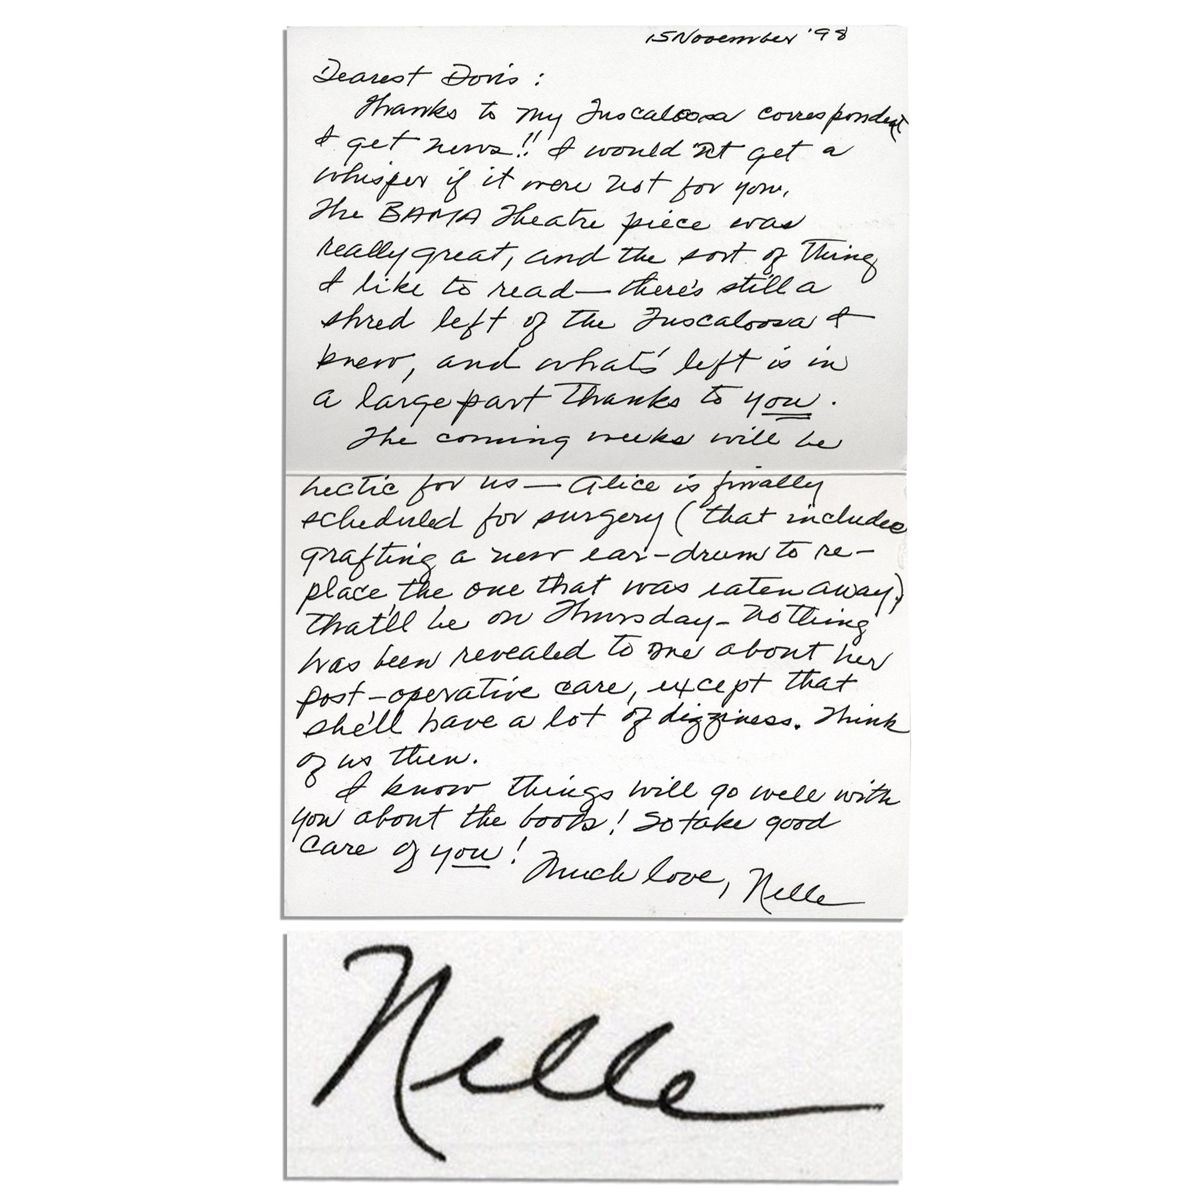 15 November '98
Dearest Doris:
Thanks to my Tuscaloosa correspondent
I get news!! I wouldn't get a
whisper if it were not for you.
The BAMA Theatre piece was
really great, and the sort of thing
I like to read — there's still a
shred left of the Tuscaloosa I
knew, and what's left is in
a large part thanks to you.
The coming weeks will be
hectic for us — Alice is finally
scheduled for surgery (that includes
grafting a new ear-drum to re-
place the one that was eaten away).
That'll be on Thursday — nothing
has been revealed to me about her
post-operative care, except that
she'll have a lot of dizziness. Think
of us then.
I know things will go well with
you about the boobs! So take good
care of you!
Much love, Nelle
Nelle